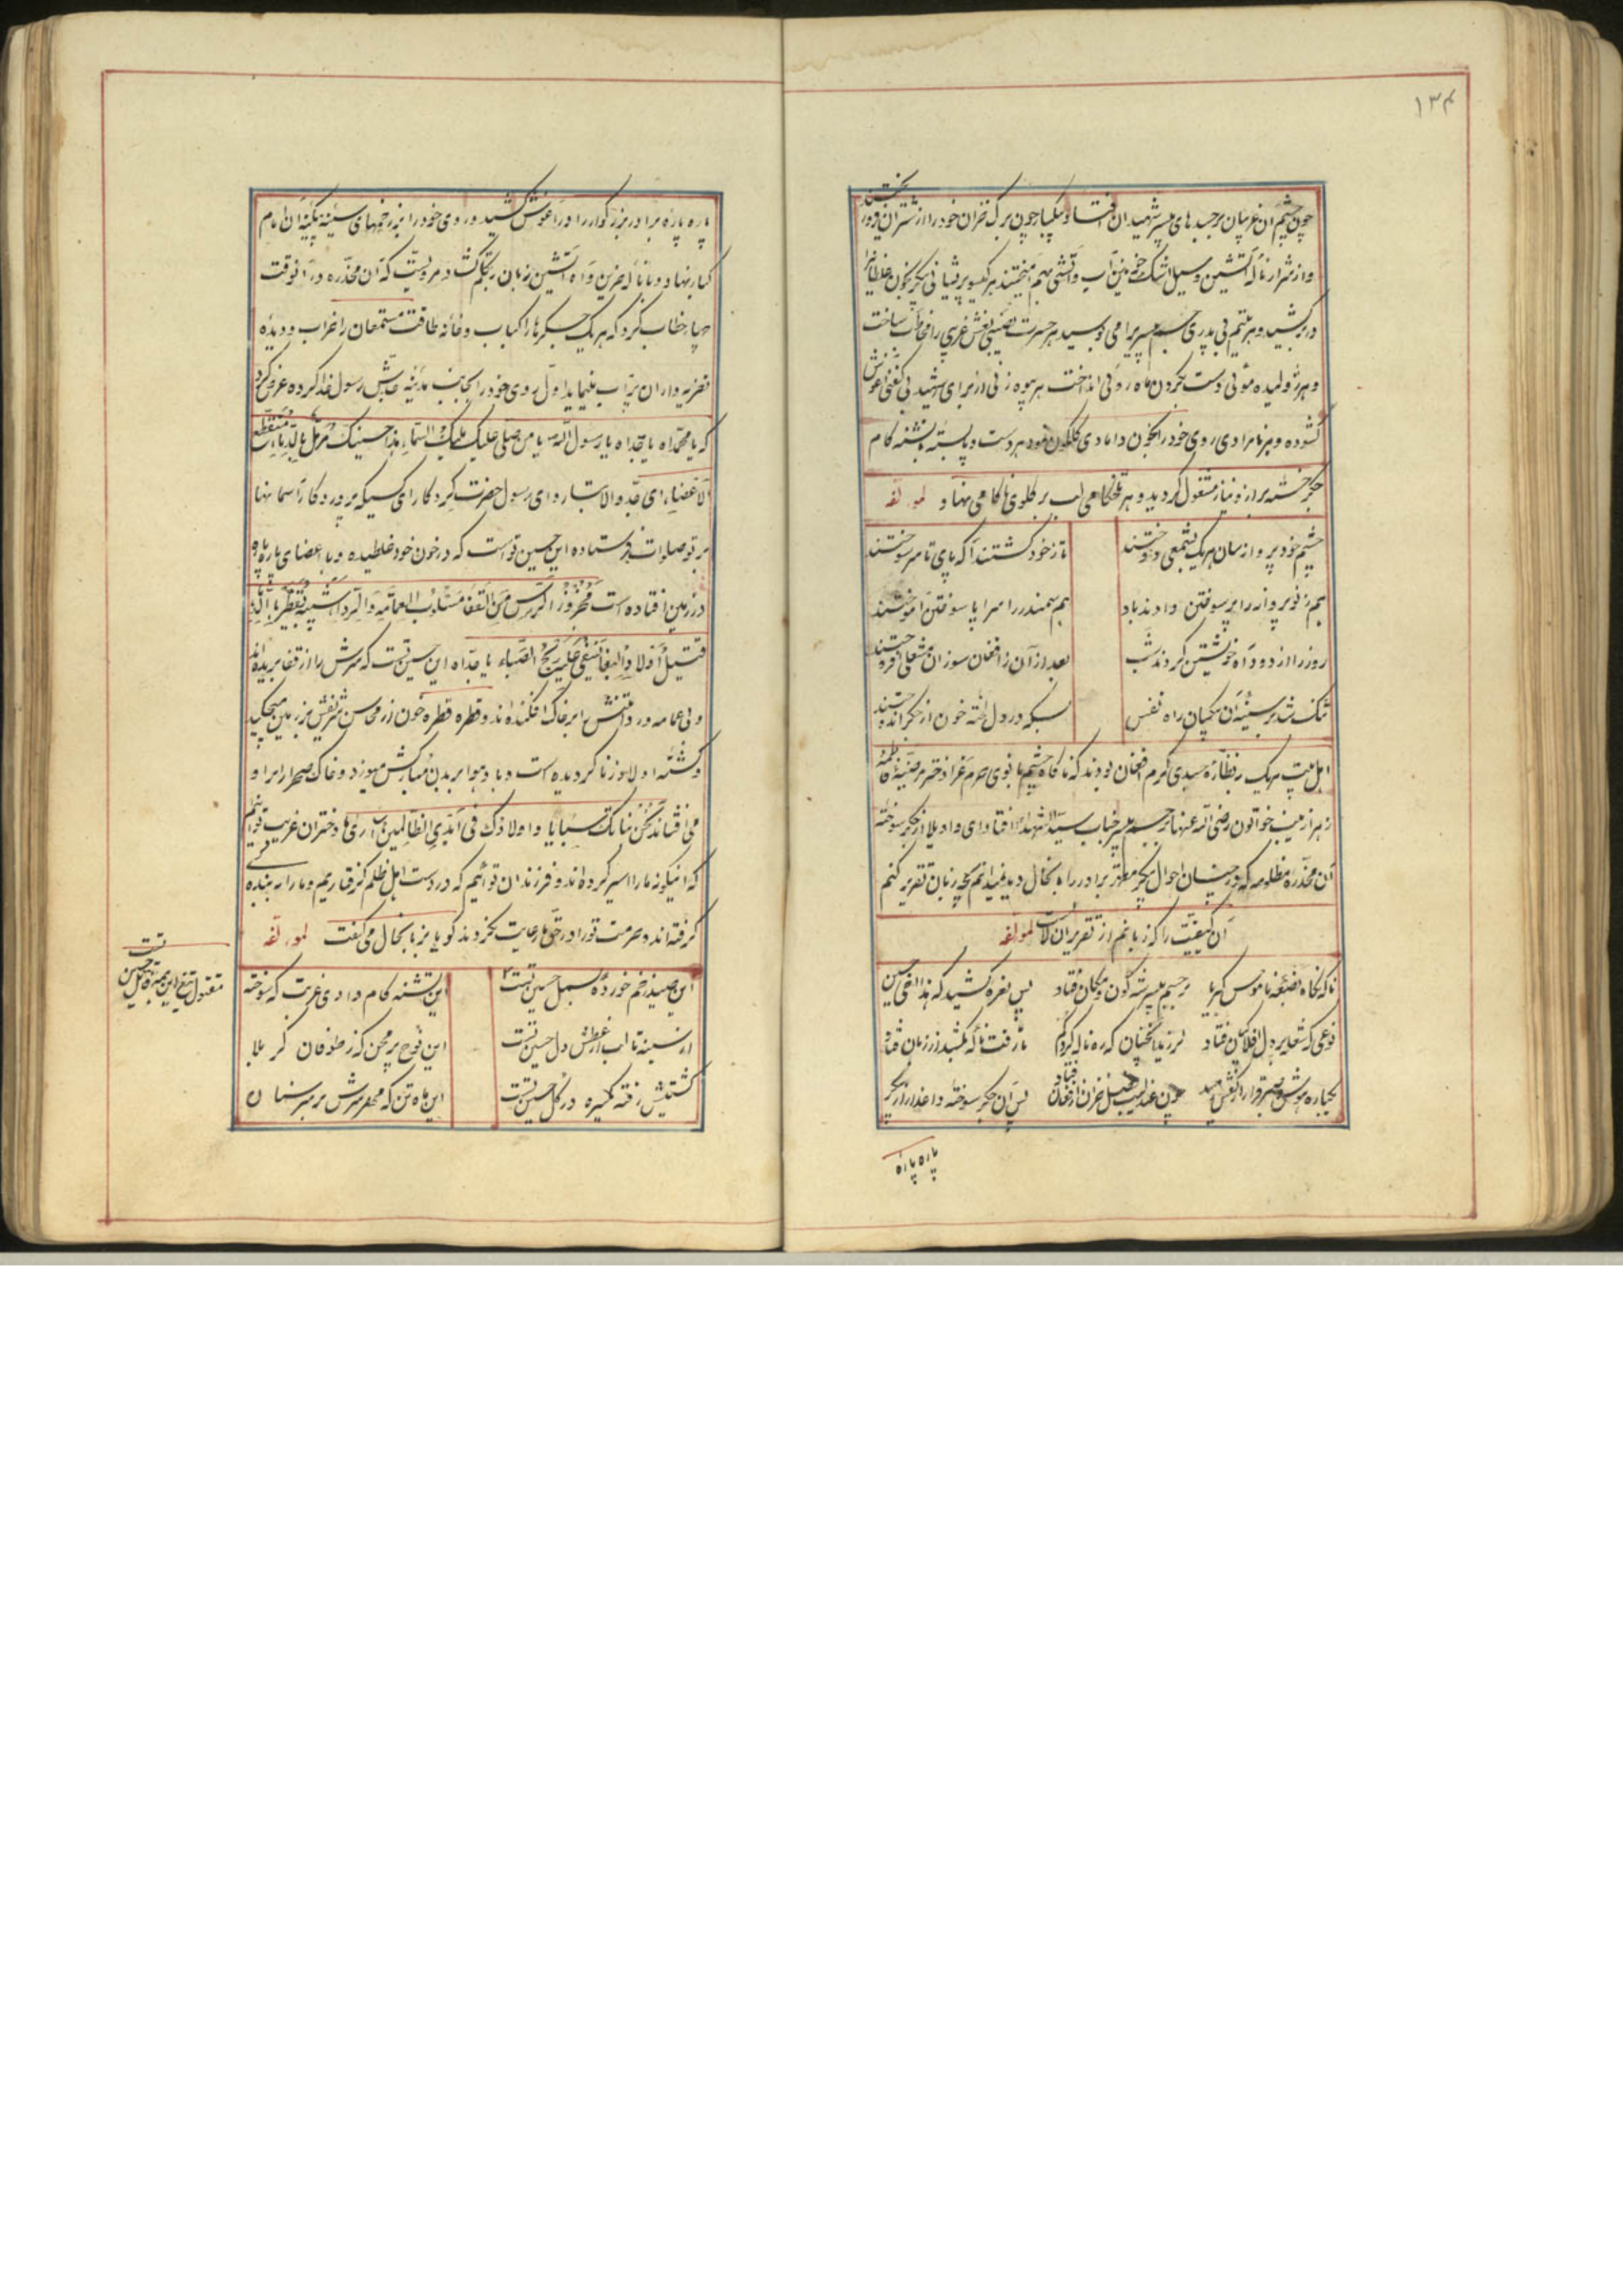 ۱۳۴
چون چشم آن غریبان بر جسدهای بی سر شهیدان افتاد و یکبار چون برک خزان خود را از شتران فرو ریختند
و از شرار ناله آتشین و سیل اشک خونین آب و آتشی بهم آمیختند هر کیسو پریشانی پیکر بخون غلطانیرا
در بر کشید و هر یتیم بی پدری جسم بی سریرا می بوسید هر حسرت نصیبی نعش غریبی را مخاطب ساخت
و هر ژولیده موئی دست بکردن ماه روئی انداخت هر بیوه زنی از برای شهید بی کفنی آغوش
کشوده و هر نامرادی روی خود را بخون دامادی کلکون نمود هر دست و پا بسته با تشنه کام
جکر خسته براز و نیاز مشغول کردید و هر تلخکامی لب بر کلوی ناکامی نهاد لمولفه
چشم خود پروانه سان هر یک بشمعی دوختند
تا ز خود کشتند آکه پای تا سر سوختند
هم ز نو پروانه را پر سوختن دادند یاد
هم سمندر را سراپا سوختن آموختند
روز را از دود آه خویشتن کردند شب
بعد از آن از افغان سوزان مشعلی افروختند
تنک شد بر سینه آن بیکسان راه نفس
بسکه در دل لخته خون از جکر اندوختند
اهل بیت هر یک بنظاره جسدی کرم افغان بودند که ناکاه چشم بانوی حرم غرا دختر مرضیه فاطمه
زهرا زینب خواتون رضی الله عنها بر جسم بی سر جناب سید الشهداء افتاد ای واویلا از جکر سوخته
آن مخدره مظلومه که چنان احوال پیکر مطهر برادر را به آنحال دید نمیدانم بچه زبان تقریر کنم
آن کیفیت را که زبانم از تقریر آن لال است لمولفه
ناکه نکاه بضعه ناموس کبریا
بر جسم بی سر شه کون و مکان فتاد
پس نعره کشید که هذا اخی حسین
نوعی که شعله بر دل افلاکیان فتاد
لرزید آنچنان که ره ناله کرد کم
تا رفت ناله بکشد از زبان فتاد
یکباره هوش و صبر و قرار از کفش رمید
چون عندلیب فصل خزان از فغان فتاد
پس آن جکر سوخته داغدار پیکر
پاره پاره
پاره پاره برادر بزرکوار را در آغوش کشید و روی خود را بزخمهای سینه بیکینه آن امام
کبار نهاد و با ناله حزین و آه آتشین زبان بتکلم کشاد مرویست که آن مخدره در آنوقت
چهار خطاب کرد که هر یک جکرها را کباب و خانه طاقت مستمعان را خراب و دیده
تعزیه داران را پر آب مینماید اول روی خود را بجانب مدینه جدش رسول خدا کرده عرض کرد
که یا محمداه یا جداه یا رسول الله یا من صلی علیک ملیک السماء هذا حسینک مرمل بالدماء منقطع
الاعضاء ای جد والا تبار و ای رسول حضرت کردکار ای کسیکه پروردکار آسمانها
بر تو صلوات فرستاده این حسین تو است که در خون خود غلطیده و با اعضای پاره پاره
در زمین افتاده است محزوز الرأس من القفا مسلوب العمامة والرداء شیبته تقطر بالدماء
قتیل اولاد البغا تسفی علیه ریح الصباء یا جداه این حسین تست که سرش را از قفا بریده اند
و بی عمامه و ردا تنش را بر خاک افکنده اند و قطره قطره خون از محاسن شریفش بر زمین میچکد
و کشته اولاد زنا کردیده است و باد هوا بر بدن مبارکش میوزد و خاک صحرا را بر او
می افشاند نحن بناتک سبایا و اولادک فی ایدی الظالمین اساری ها دختران غریب توایم
که اینکونه ما را اسیر کرده اند و فرزندان توئیم که در دست اهل ظلم کرفتاریم و ما را به بنده
کرفته اند و حرمت تو را در حق ما رعایت نکردند کویا بزبان حال می کفت لمولفه
این صید زخم خورده بسمل حسین تست
این تشنه کام وادی غربت که سوخته
از سینه تا لب از عطش دل حسین تست
این نوح پر محن که ز طوفان کربلا
کشتیش رفته یکسره در کل حسین تست
این ماه تن که مهر سرش بر سر سنان